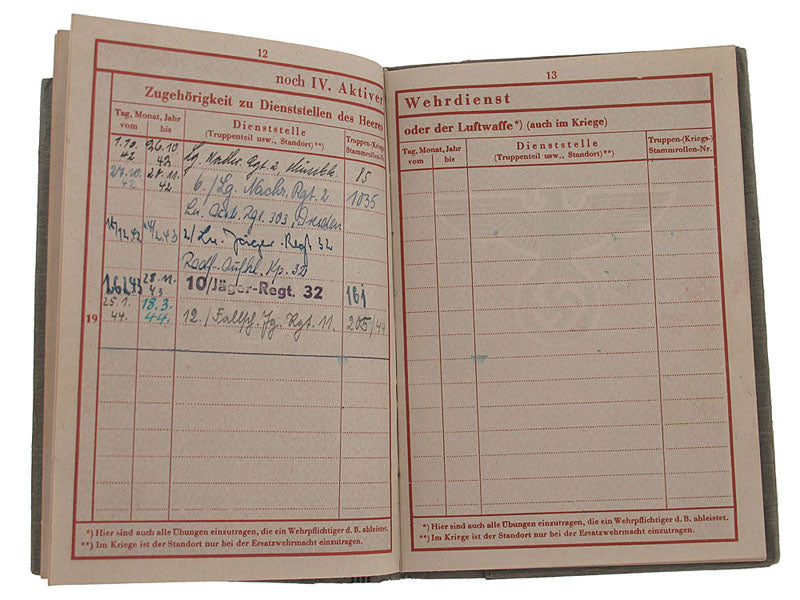 12
noch IV. Aktiver
Zugehörigkeit zu Dienststellen des Heeres
Tag, Monat, Jahr
vom bis
Dienststelle
(Truppenteil usw., Standort)**)
Truppen-(Kriegs-)
Stammrollen-Nr.
1.10. 26.10 Lg. Nachr. Rgt. 2 15
42 42
27.10. 28.11. 6./Lg. Nachr. Rgt. 2 1035
42 42
Rgt. 303, Dresden
2/Ln. Jäger-Regt 32
Kp. 32
28.11. 10/Jäger-Regt. 32 161
43
25.1. 18.3. 12./Fallsch. Jg. Rgt. 11. 205/44
19 44. 44.
*) Hier sind auch alle Übungen einzutragen, die ein Wehrpflichtiger d. B. ableistet.
**) Im Kriege ist der Standort nur bei der Ersatzwehrmacht einzutragen.
13
Wehrdienst
oder der Luftwaffe*) (auch im Kriege)
Tag, Monat, Jahr
vom bis
Dienststelle
(Truppenteil usw., Standort)**)
Truppen-(Kriegs-)
Stammrollen-Nr.
*) Hier sind auch alle Übungen einzutragen, die ein Wehrpflichtiger d. B. ableistet.
**) Im Kriege ist der Standort nur bei der Ersatzwehrmacht einzutragen.